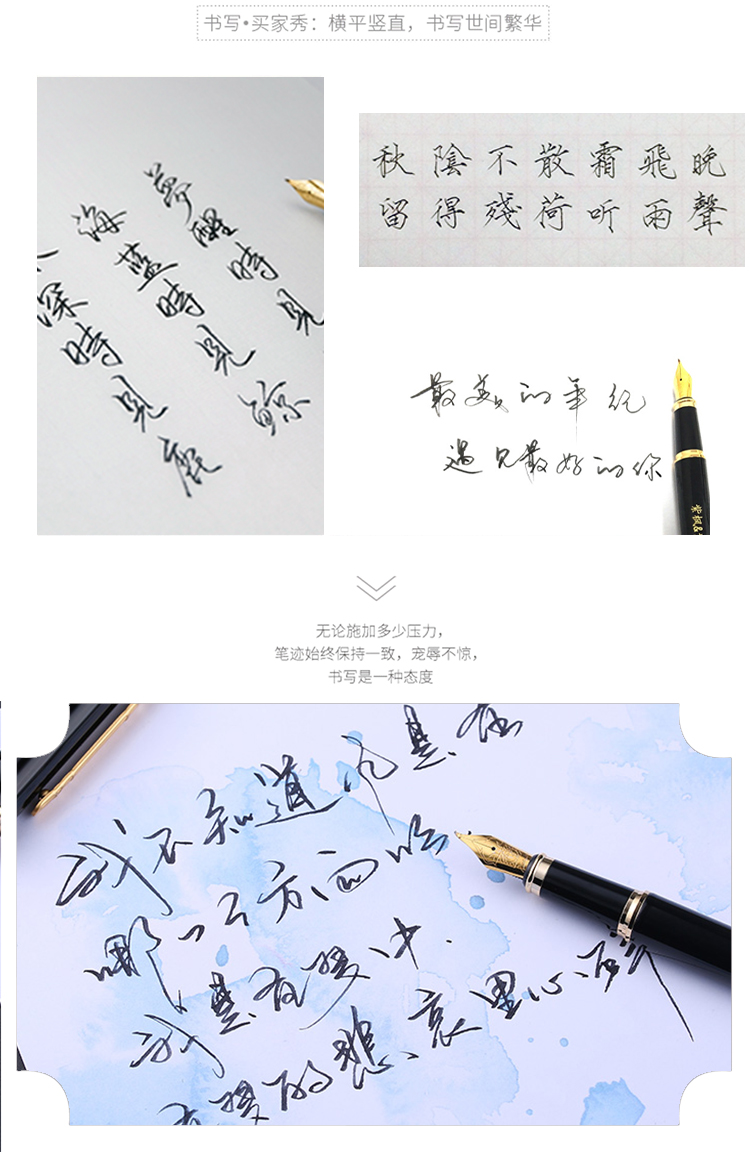 书写•买家秀：横平竖直，书写世间繁华
夢醒時見
海蓝時見鲸
深時見鹿
秋陰不散霜飛晚
留得殘荷听雨聲
最美的年纪
遇见最好的你
无论施加多少压力，
笔迹始终保持一致，宠辱不惊，
书写是一种态度
我不知道风是在
哪一个方向吹
我是在梦中
在梦的悲哀里心碎